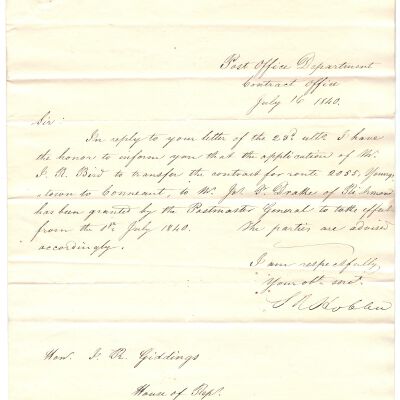 Post Office Department
Contract Office
July 16 1840.
Sir:
In reply to your letter of the 23d ulto. I have
the honor to inform you that the application of Mr.
J. R. Bird to transfer the contract for route 2055, Youngs
town to Conneaut, to W. Drake of
has been granted by the Postmaster General to take effect
from the 1st July 1840. The parties are advised
accordingly.
I am respectfully
Your obt. servt.
S R Hobbie
Hon. J. R. Giddings
House of Reps.